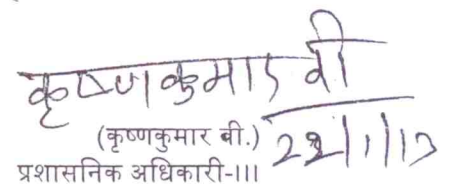 कृष्णकुमार वी
(कृष्णकुमार बी.)
22/1/13
प्रशासनिक अधिकारी-III